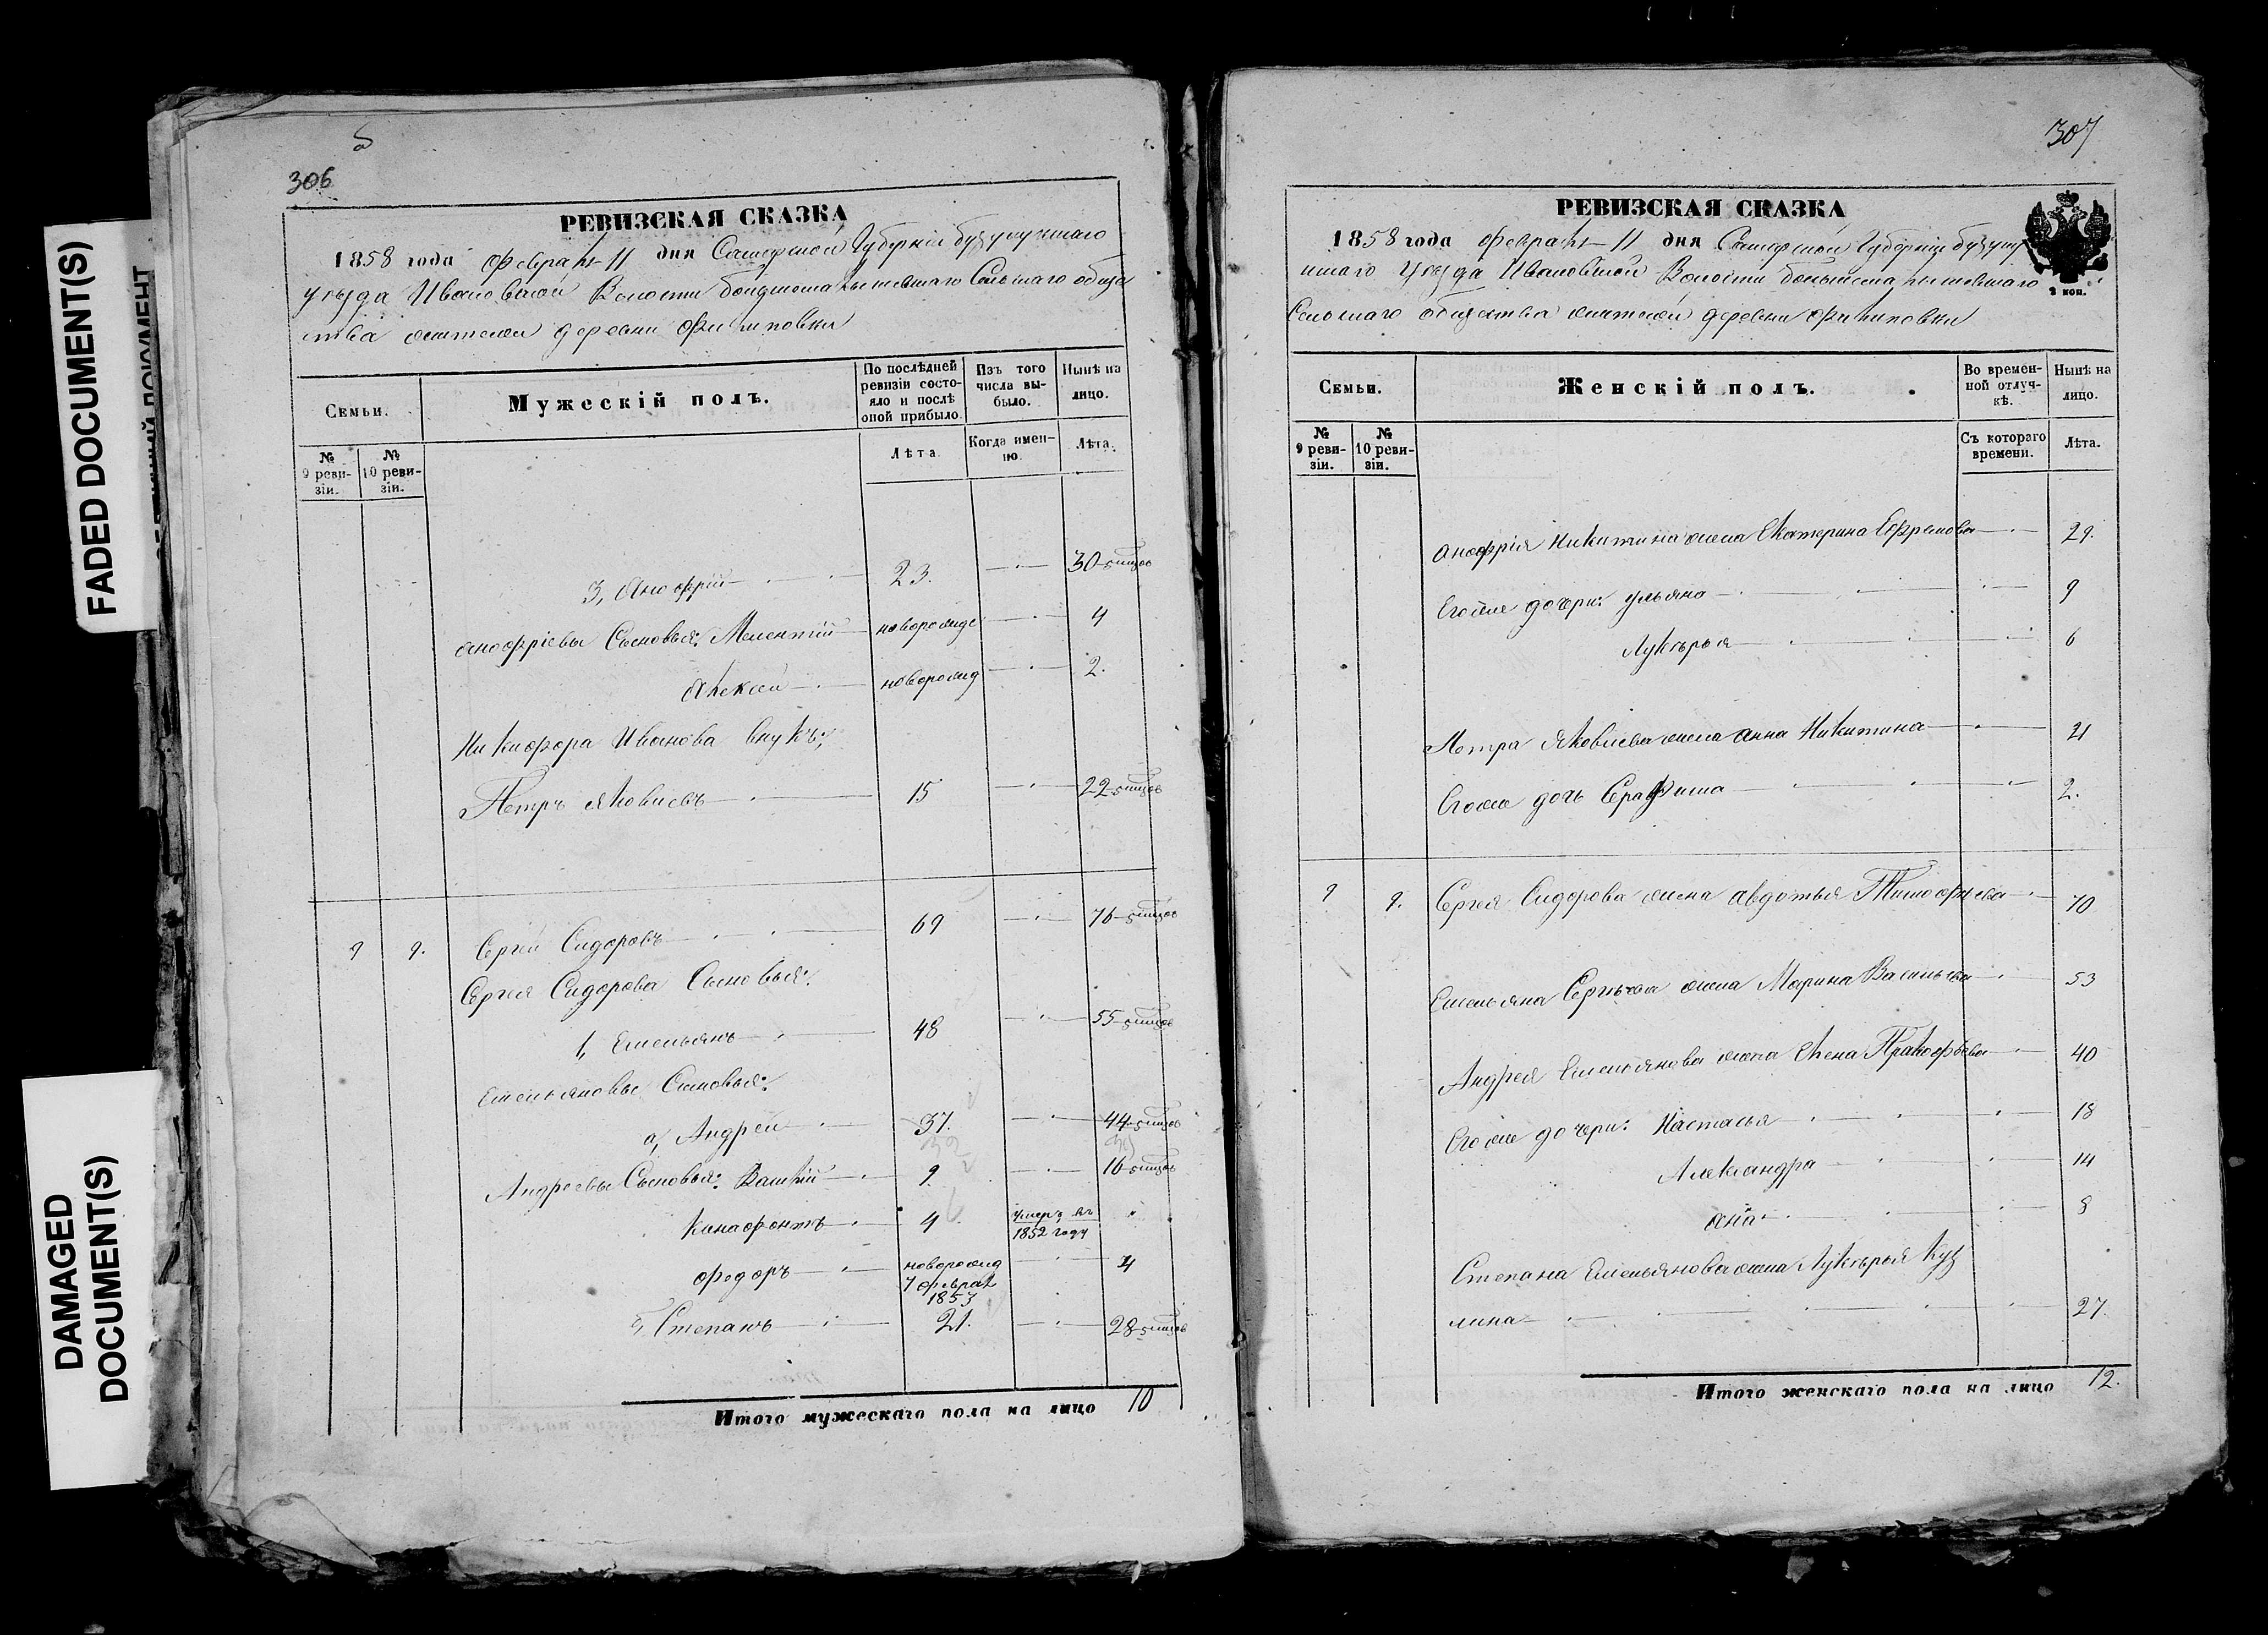 FADED DOCUMENT(S)
DAMAGED
DOCUMENT(S)
306
РЕВИЗСКАЯ СКАЗКА
1858 года февраля 11 дня Самарской Губерніи бузулукскаго
уезда Ивановской Волости Сельскаго общес
тва жителей деревни филиповки
Семьи.
Мужескій полъ.
По послѣдней
ревизіи состо-
яло и послѣ
оной прибыло.
Изъ того
числа вы-
было.
Нынѣ на
лицо.
№
9 реви-
зіи.
№
10 реви-
зіи.
Лѣта.
Когда имен-
но.
Лѣта.
3, Анофрій 23. 30
анофріевы Сыновья: Мелентій новорожде 4
Алексей новорожд 2.
Никифора Иванова внукъ;
Петръ Яковлевъ 15 22
9 9. Сергей Сидоровъ 69 76
Сергея Сидорова Сыновья:
1, Емельянъ 48 55
Емельяновы Сыновья:
а, Андрей 37. 44
Андреевы Сыновья: 9. 16
Ксанофонтъ 4 умеръ въ
1852 году
Федоръ новорожд 4
7 феврал
1853
Степанъ 21. 28
Итого мужескаго пола на лицо 10
307
РЕВИЗСКАЯ СКАЗКА
1858 года февраля 11 дня Самарской Губерніи бузулу
кскаго Уезда Ивановской Волости
2 коп.
Сельскаго общества жителей деревни филиповки
Семьи.
Женскій полъ.
Во времен-
ной отлуч-
кѣ.
Нынѣ на
лицо.
№
9 реви-
зіи.
№
10 реви-
зіи.
Съ котораго
времени.
Лѣта.
Анофрія Никитина жена Екатерина Ефремова 29.
Егоже дочери: ульяна 9
Лукерья 6
Петра Яковлева жена анна Никитина 21
Егоже дочь Серафима 2.
9 9. Сергея Сидорова жена авдотья Тимофеева 70
Емельяна Сергеева жена Марина Васильева 53
Андрея Емельянова жена Елена Пракофьева 40
Егоже дочери: Настасья 18
Александра 14
Анна 8
Степана Емельянова жена Лукерья Куз
мина 27.
Итого женскаго пола на лицо 12.